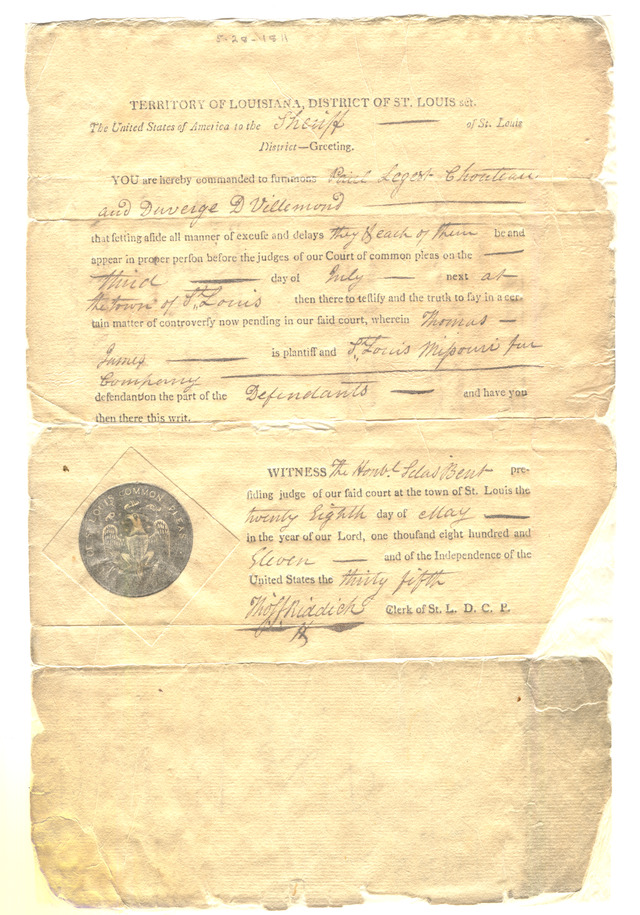 5-28-1811
TERRITORY OF LOUISIANA, DISTRICT OF ST. LOUIS sct.
The United States of America to the Sheriff of St. Louis
District—Greeting.
YOU are hereby commanded to summons Paul Legest Chouteau
and Daverge D Villemond
that setting aside all manner of excuse and delays they & each of them be and
appear in proper person before the judges of our Court of common pleas on the
third day of July next at
the town of St. Louis then there to testify and the truth to say in a cer-
tain matter of controversy now pending in our said court, wherein Thomas
James is plantiff and St. Louis Missouri fur
Company
defendant on the part of the Defendants and have you
then there this writ.
WITNESS The Honbl. Silas Bent pre-
siding judge of our said court at the town of St. Louis the
twenty Eighth day of May
in the year of our Lord, one thousand eight hundred and
Eleven and of the Independence of the
United States the thirty fifth
Thos. F. Riddick Clerk of St. L. D. C. P.
ST. LOUIS COMMON PLEAS